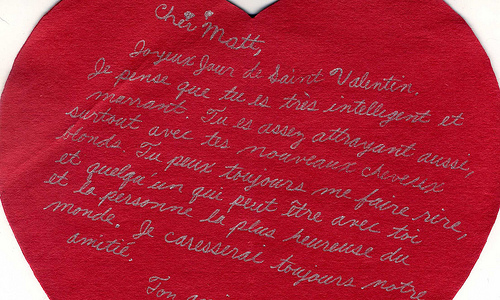 Cher Matt,
Joyeux Jour de Saint Valentin.
Je pense que tu es très intelligent et
marrant. Tu es assez attrayant aussi,
surtout avec tes nouveaux cheveux
blonds. Tu peux toujours me faire rire,
et quelqu'un qui peut être avec toi
et la personne la plus heureuse du
monde. Je caresserai toujours notre
amitié.
Ton